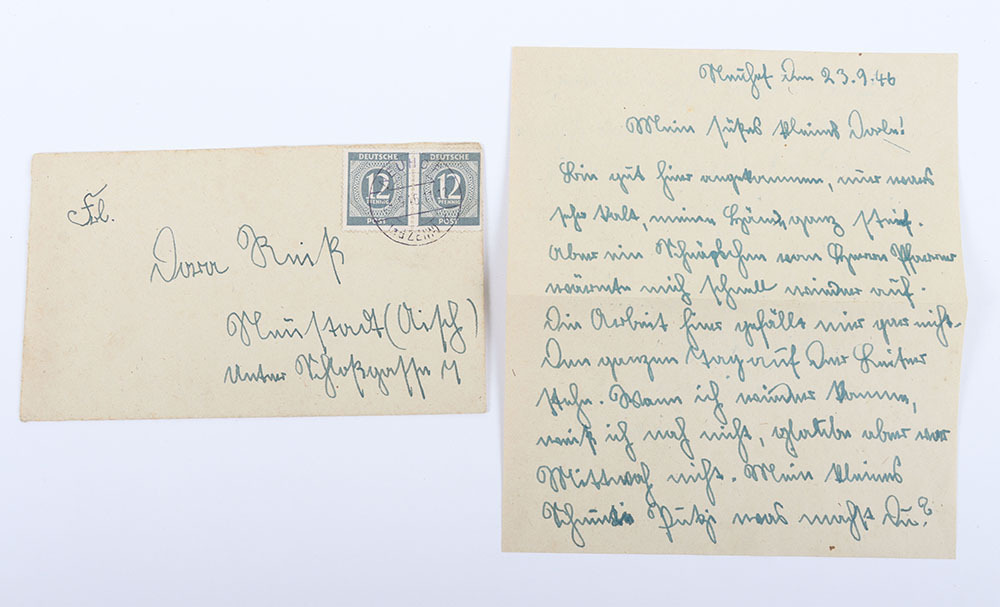 Frl.
Dora Reiß
Neustadt (Aisch)
Unter Schloßgasse 7
DEUTSCHE DEUTSCHE
12 12
PFENNIG PFENNIG
POST POST
Neuhof den 23.9.46
Mein süßes kleines Dorle!
Bin gut hier angekommen, nur wars
sehr kalt, meine Hände ganz steif.
Aber ein Schnäpschen von Herrn Pfarrer
wärmte mich schnell wieder auf.
Die Arbeit hier gefällt mir gar nicht.
Den ganzen Tag auf der Leiter
stehn. Wann ich wieder komme,
weiß ich noch nicht, glaube aber vor
Mittwoch nicht. Mein kleines
Putzi was machst Du?